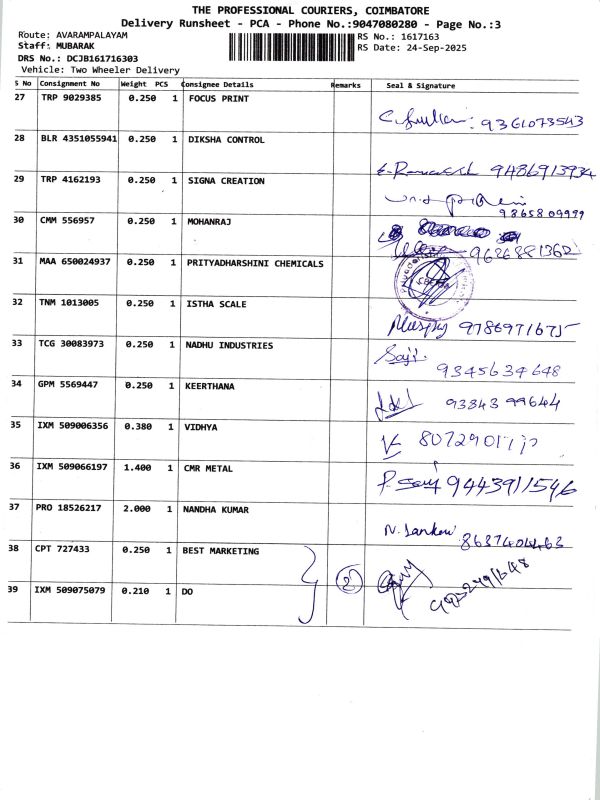 THE PROFESSIONAL COURIERS, COIMBATORE
Delivery Runsheet - PCA - Phone No.:9047080280 - Page No.:3
Route: AVARAMPALAYAM
RS No.: 1617163
Staff: MUBARAK
RS Date: 24-Sep-2025
DRS No.: DCJB161716303
Vehicle: Two Wheeler Delivery
S No Consignment No Weight PCS Consignee Details Remarks Seal & Signature
27 TRP 9029385 0.250 1 FOCUS PRINT
9361073543
28 BLR 4351055941 0.250 1 DIKSHA CONTROL
9486913934
29 TRP 4162193 0.250 1 SIGNA CREATION
9865809999
30 CMM 556957 0.250 1 MOHANRAJ
31 MAA 650024937 0.250 1 PRITYADHARSHINI CHEMICALS
32 TNM 1013005 0.250 1 ISTHA SCALE
9786971675
33 TCG 30083973 0.250 1 NADHU INDUSTRIES
9345634648
34 GPM 5569447 0.250 1 KEERTHANA
9384399644
35 IXM 509006356 0.380 1 VIDHYA
36 IXM 509066197 1.400 1 CMR METAL
9443911546
37 PRO 18526217 2.000 1 NANDHA KUMAR
8637404463
38 CPT 727433 0.250 1 BEST MARKETING
2
39 IXM 509075079 0.210 1 DO